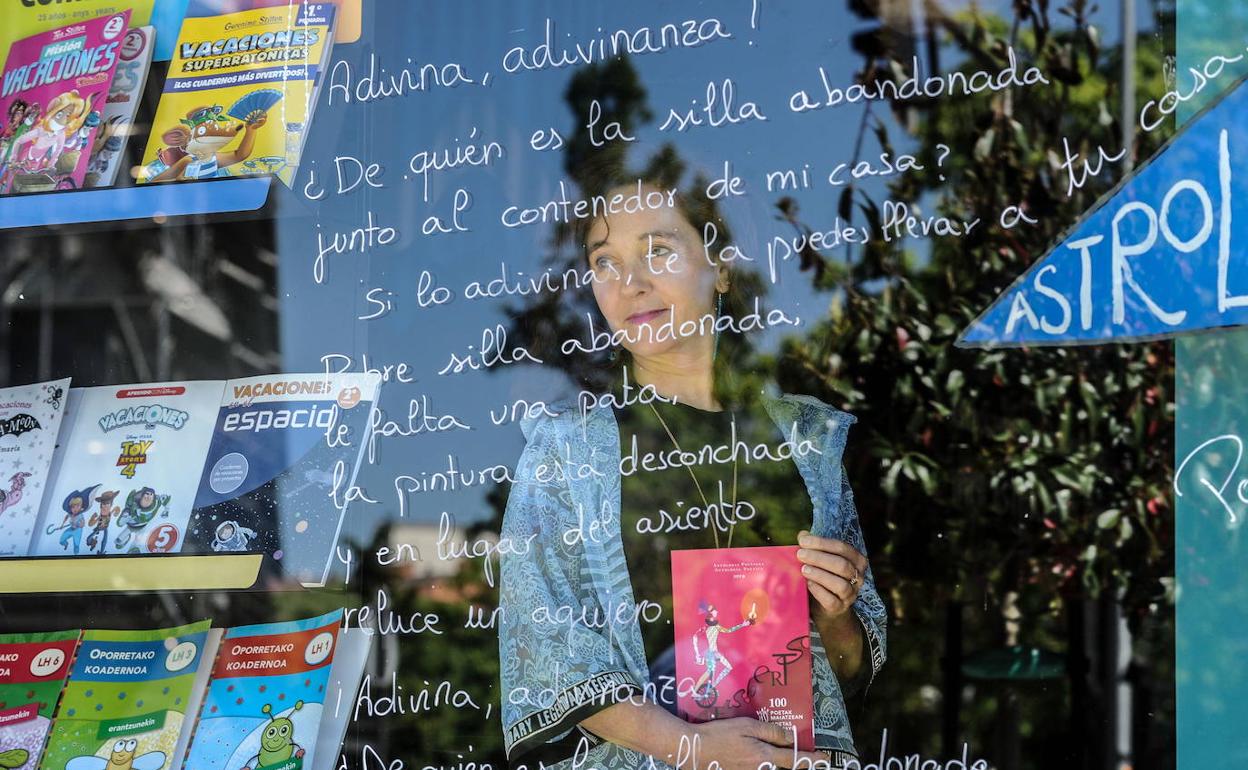 25 años · anys · years
Tea Stilton
Misión
VACACIONES
2º
Geronimo Stilton
1º
PRIMARIA
VACACIONES
SUPERRATÓNICAS
¡LOS CUADERNOS MÁS DIVERTIDOS!
Adivina, adivinanza!
¿De quién es la silla abandonada
junto al contenedor de mi casa?
Si lo adivinas, te la puedes llevar a tu casa
Pobre silla abandonada,
le falta una pata,
la pintura está desconchada
y en lugar del asiento
reluce un agujero.
¡Adivina, adivinanza
¿De quién es la silla abandonada
ASTROL
Po
APRENDO CON Disney
VACACIONES
TOY STORY 4
5
VACACIONES
en el
espacio
2º
Cuaderno de vacaciones por proyectos
LH 6
OPORRETAKO
KOADERNOA
LH 3
erantzunekin
OPORRETAKO
KOADERNOA
LH 1
erantzunekin
ANTOLOGIA POETIKOA
ANTOLOGÍA POÉTICA
2019
100
POETAK
MAIATZEAN
POETAS